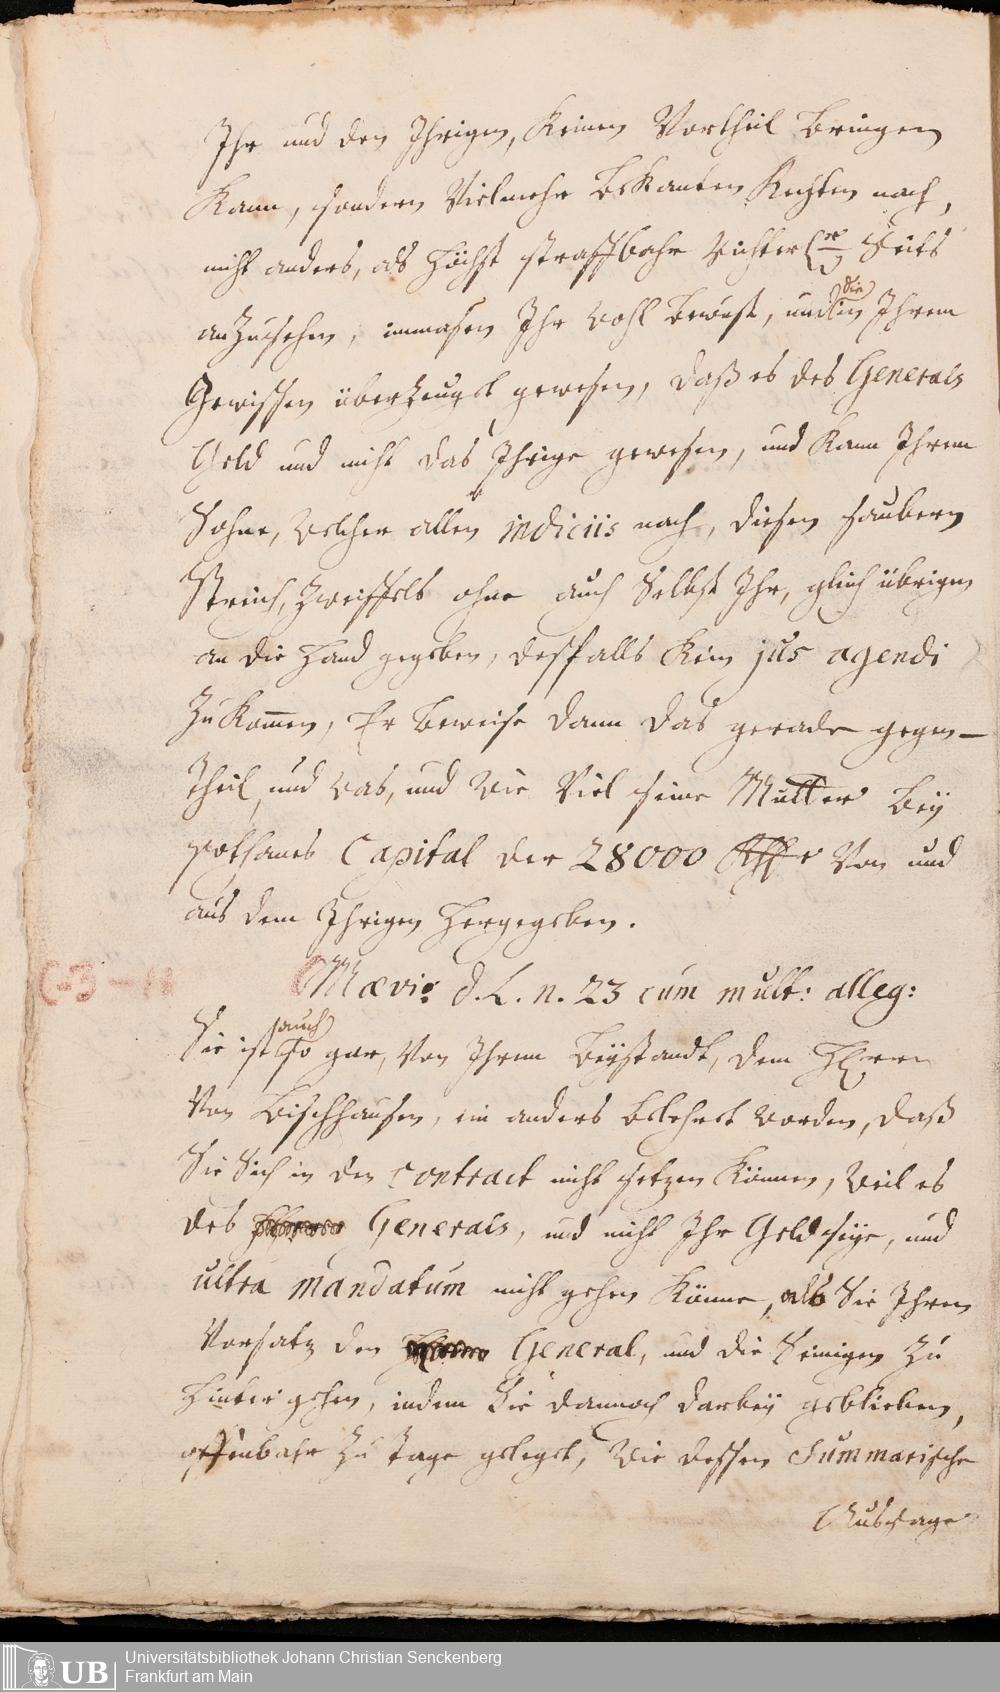 Ihr und den Ihrigen, keinen Vortheil bringen
kann, sondern Vielmehr bekanten Rechten nach,
nicht anders, als höchst straffbahr Richterl. Seits
anzusehen, immasen Ihr wohl bewust, und die in Ihrem
Gewissen überzeuget gewesen, daß es des Generals
Geld und nicht das Ihrige gewesen, und kann Ihrem
Sohne, welcher allen indiciis nach, diesen saubern
Streich, zweiffels ohne auch Selbst Ihr, gleich übrigen
an die Hand gegeben, desfalls kein jus agendi
zukom̄en, Er beweise dann das gerade gegen-
theil, und was, und wie Viel seine Mutter bey
gethanes Capital der 28000 Rthlr Von und
aus dem Ihrigen hergegeben.
Mævio d. L. n. 23 cum mult: alleg:
Sie ist auch so gar, Von Ihrem Beystandt, dem Herrn
Von Bischhausen, ein anders belehret worden, daß
Sie Sich in den Contract nicht setzen können, weil es
des Generals, und nicht Ihr Geld seye, und
ultra mandatum nicht gehen könne, als Sie Ihren
Vorsatz den General, und die Seinigen zu
hintergehen, indem Sie dannoch darbey geblieben,
offenbahr zu tage geleget, wie dessen Summarische
Aussage
C-3-11
Universitätsbibliothek Johann Christian Senckenberg
Frankfurt am Main
UB